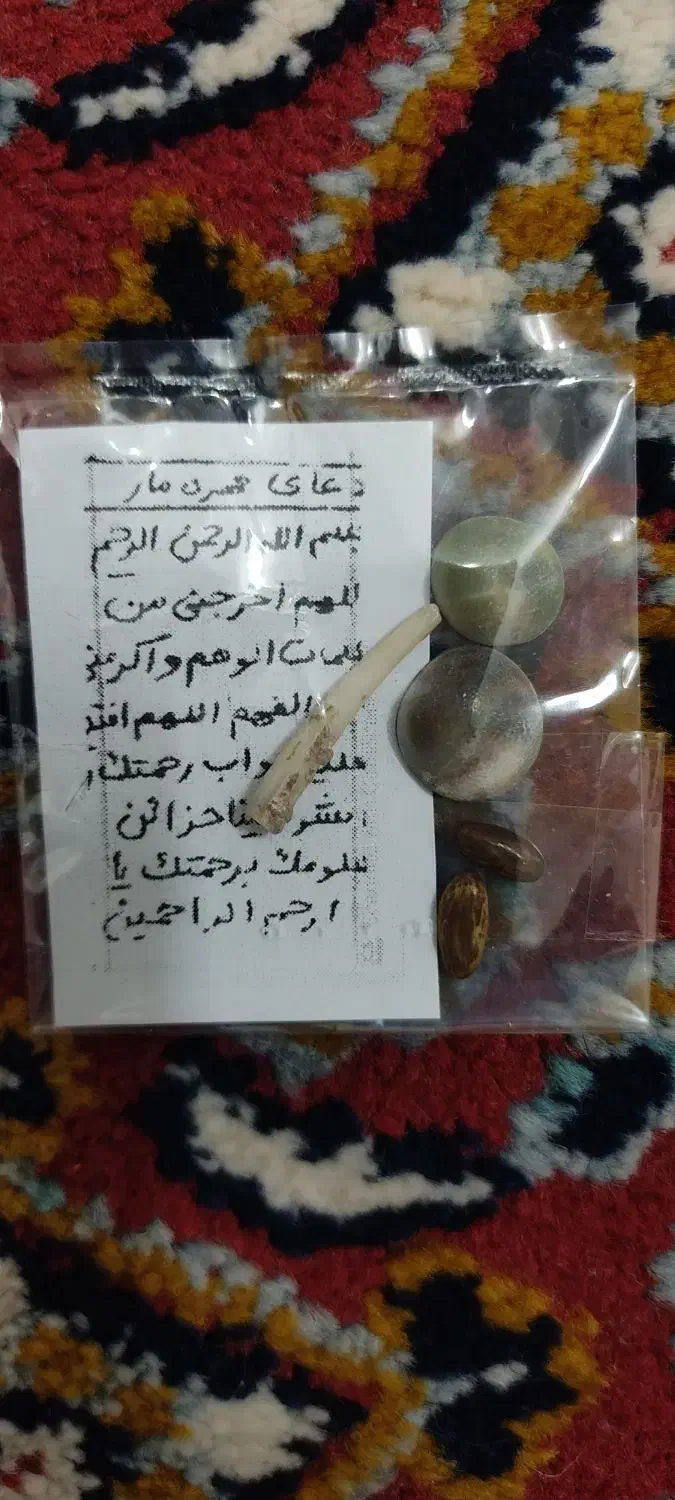 دعای مهره مار
بسم الله الرحمن الرحیم
اللهم اخرجنی من
ظلمات الوهم واکرمنی
الفهم اللهم افتح
علینا ابواب رحمتك
انشر علینا خزائن
علومك برحمتك یا
ارحم الراحمین